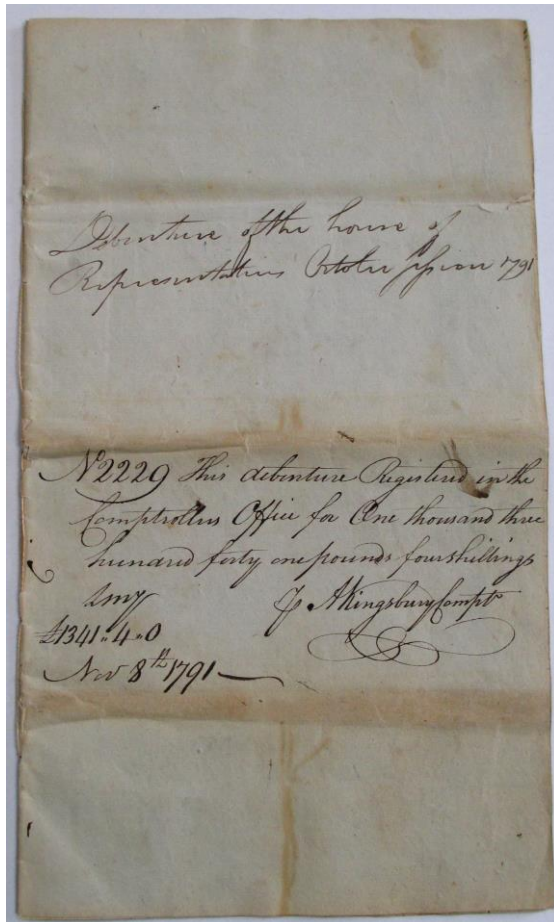 Debenture of the house of
Representatives October Session 1791
No 2229 This debenture Registered in the
Comptrollers Office for One thousand three
hundred forty one pounds four shillings
lmy
A Kingsbury Compt
£1341 " 4 " 0
Nov 8th 1791